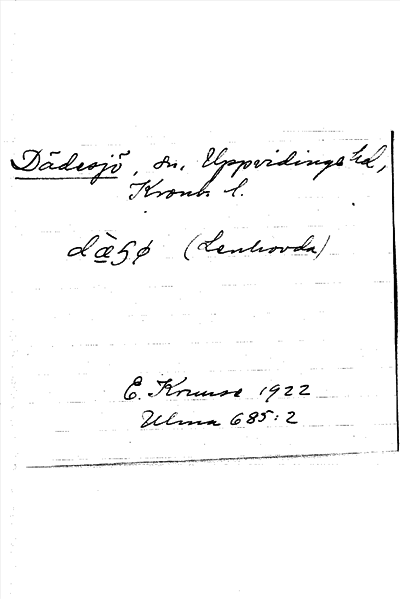 Dädesjö, sn, Uppvidinge hd,
Kronb. l.
dæ̀ꞔø (Lenhovda)
E. Kruuse 1922
Ulma 685:2